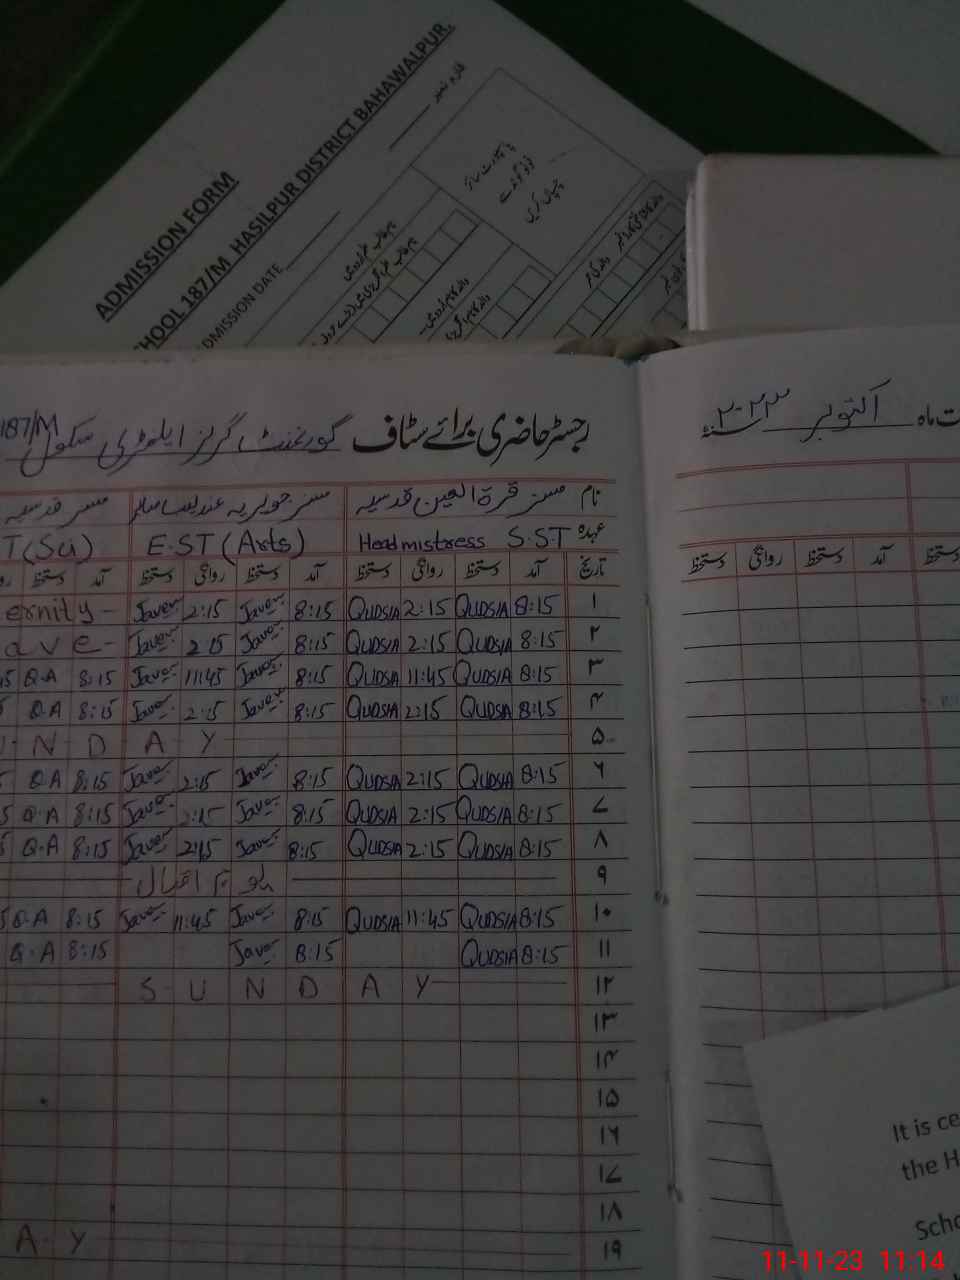 ADMISSION FORM
HOOL 187/M HASILPUR DISTRICT BAHAWALPUR.
ADMISSION DATE
فارم نمبر
چسپاں کریں
رجسٹر حاضری برائے سٹاف گورنمنٹ گرلز ایلمنٹری سکول 187/M
ت ماہ اکتوبر ۲۰۲۳
نام مسز قرۃ العین قدسیہ مسز جویریہ عندلیب مسز قدسیہ
عہدہ Headmistress S.S.T E.ST (Arts) T(Su)
تاریخ آمد دستخط روانگی دستخط آمد دستخط روانگی دستخط آمد دستخط
دستخط آمد دستخط روانگی دستخط
۱ 8:15 QUDSIA 2:15 QUDSIA 8:15 Javer 2:15 Javer ernity-
۲ 8:15 QUDSIA 2:15 QUDSIA 8:15 Javer 2:15 Javer ave-
۳ 8:15 QUDSIA 11:45 QUDSIA 8:15 Javer 11:45 Javer 8:15 Q.A
۴ 8:15 QUDSIA 2:15 QUDSIA 8:15 Javer 2:15 Javer 8:15 Q.A
۵ N D A Y
۶ 8:15 QUDSIA 2:15 QUDSIA 8:15 Javer 2:15 Javer 8:15 Q.A
۷ 8:15 QUDSIA 2:15 QUDSIA 8:15 Javer 2:15 Javer 8:15 Q.A
۸ 8:15 QUDSIA 2:15 QUDSIA 8:15 Javer 2:15 Javer 8:15 Q.A
۹ اقبال
۱۰ 8:15 QUDSIA 11:45 QUDSIA 8:15 Javer 11:45 Javer 8:15 Q.A
۱۱ 8:15 QUDSIA 8:15 Javer 8:15 Q.A
۱۲ S U N D A Y
۱۳
۱۴
۱۵
۱۶
۱۷
۱۸
۱۹ A Y
It is ce
the H
Scho
11-11-23 11:14